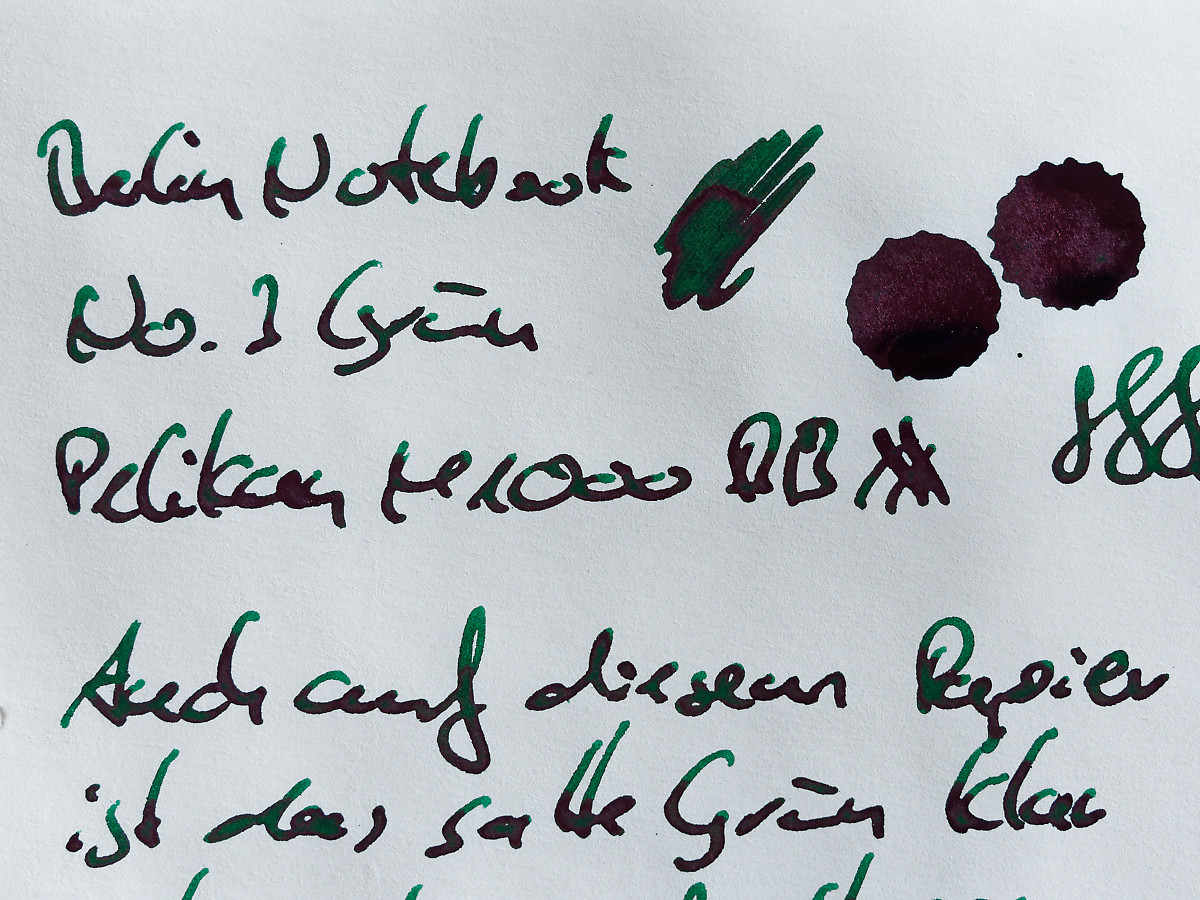 Berlin Notebook
No. 1 Grün
Pelikan M1000 BB
Auch auf diesem Papier
ist das satte Grün klar